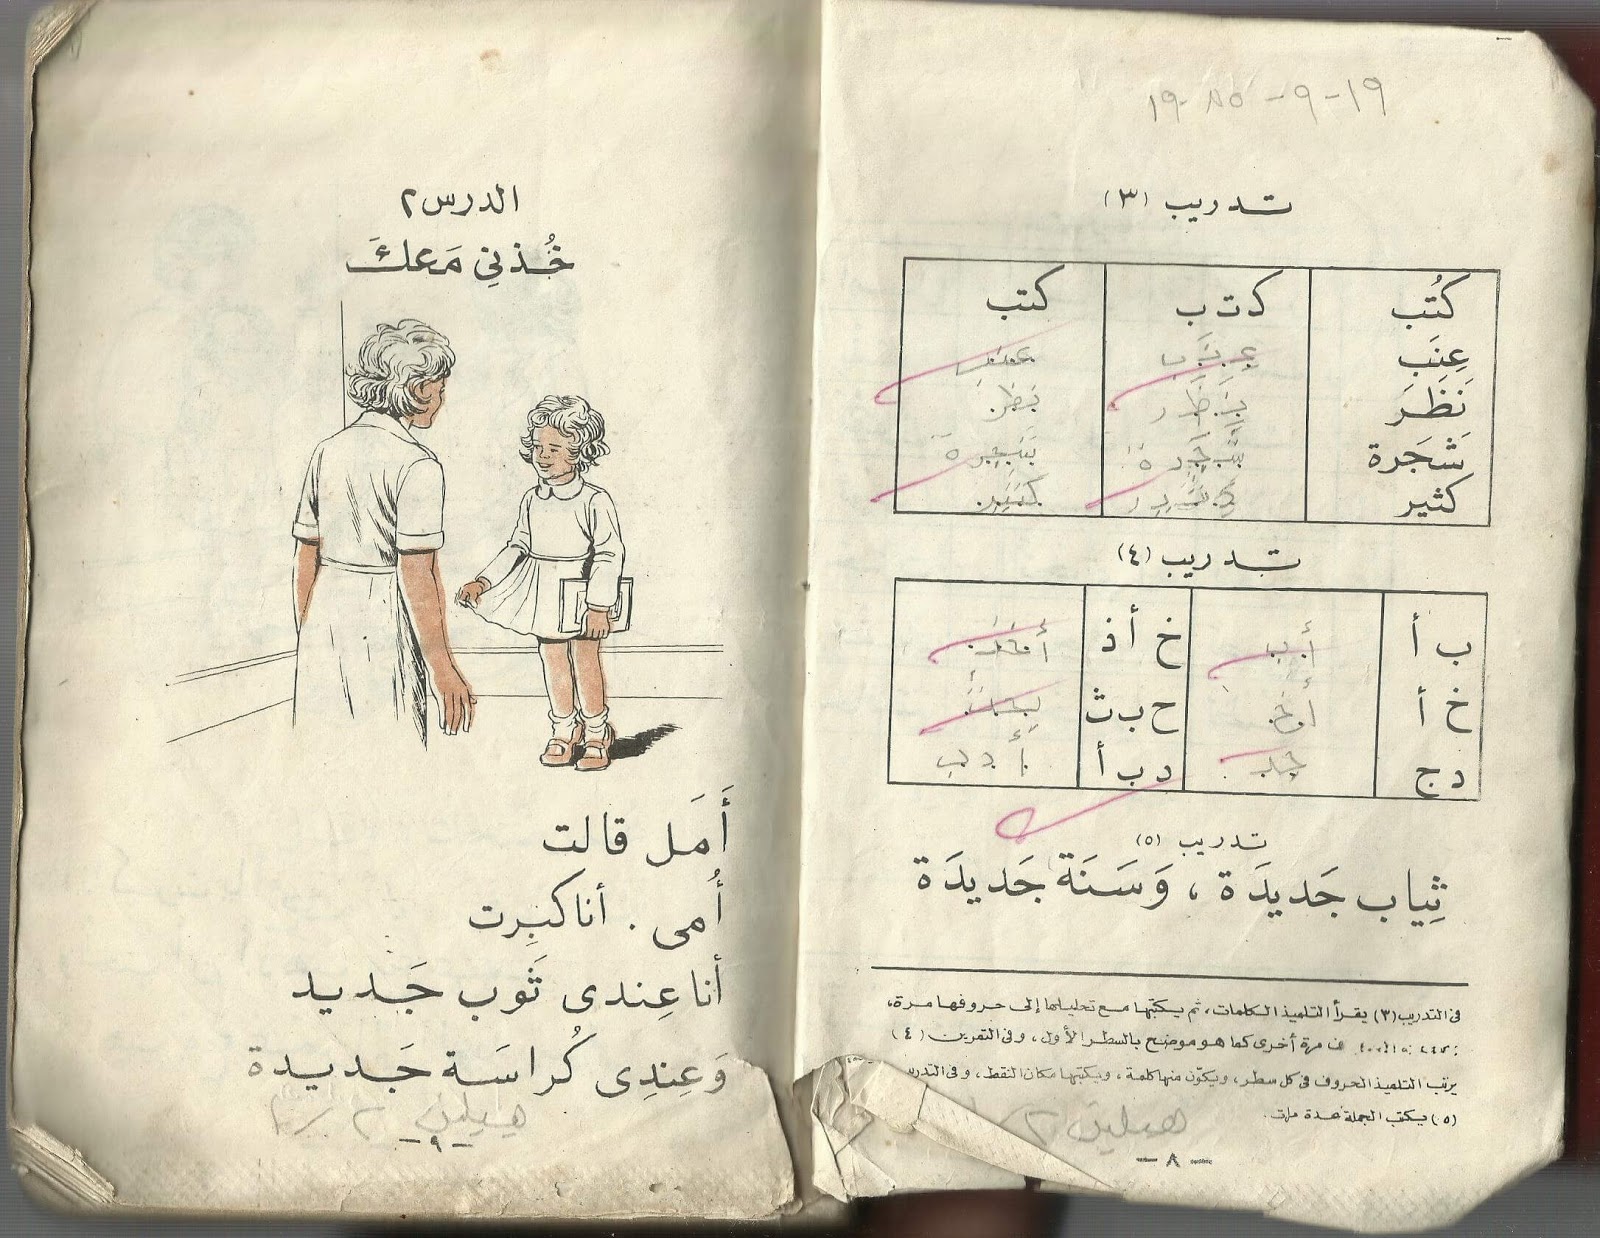 ١٩-٩-١٩٨٥
تدريب (٣)
كُتب	ك ت ب	كتب
عِنَب	ع نَ ب	عنب
نَظَرَ	نَ ظَ ر	نظر
شَجَرة	ش جَ ر ة	شجرة
كثير	ك ث ي ر	كثير
تدريب (٤)
ب أ	أب	خ أ ذ	أخذ
خ أ	أخ	ح ب ث	بحث
د ج	جد	د ب أ	أدب
تدريب (٥)
ثِياب جَديدَة ، وَسَنَة جَديدَة
فى التدريب (٣) يقرأ التلميذ الكلمات، ثم يكتبها مع تحليلها إلى حروفها مرة،
مرة أخرى كما هو موضح بالسطر الأول، وفى التمرين (٤)
يرتب التلميذ الحروف فى كل سطر، ويكوّن منها كلمة، ويكتبها مكان النقط، وفى التدريب
(٥) يكتب الجملة عدة مرات.
هيلين ٢
- ٨ -
الدرس ٢
خُذنِي مَعك
أَمَل قالت
أُمى . أنا كبِرت
أنا عِندى ثَوب جَديد
وَعِندِى كُراسَة جَديدة
هيلين ٢
- ٩ -